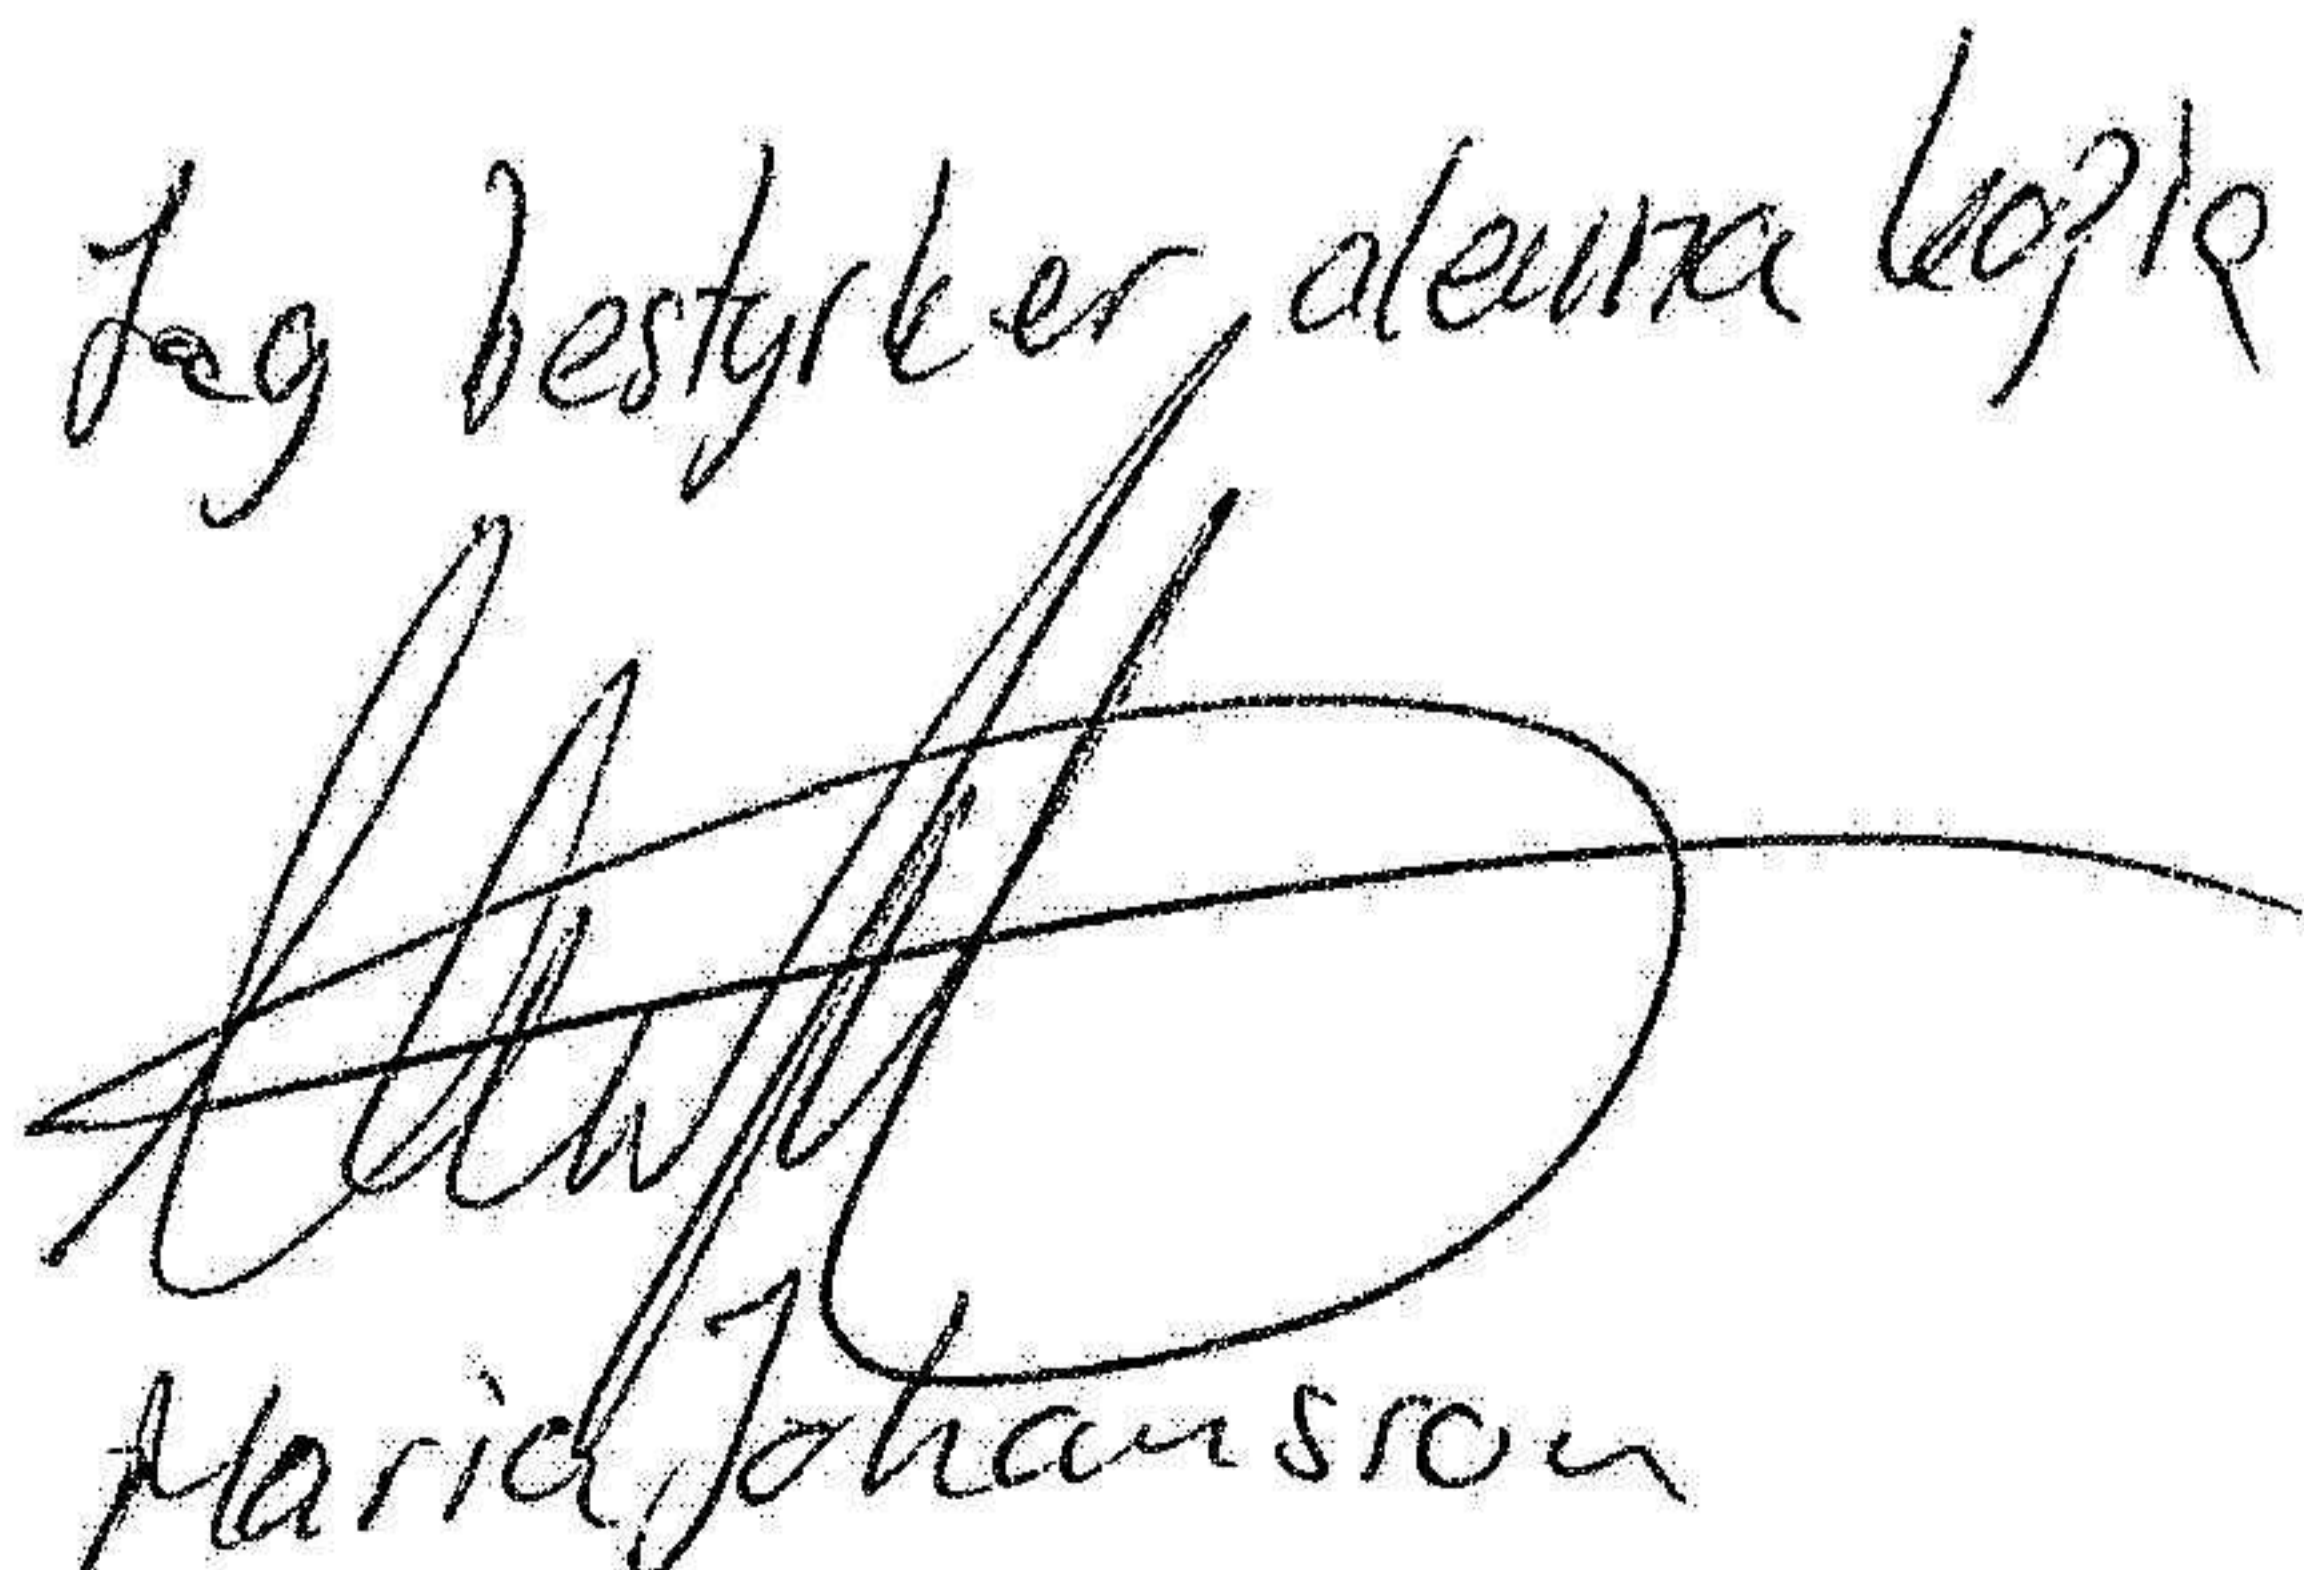 Jag bestyrker denna kopia
Maria Johansson